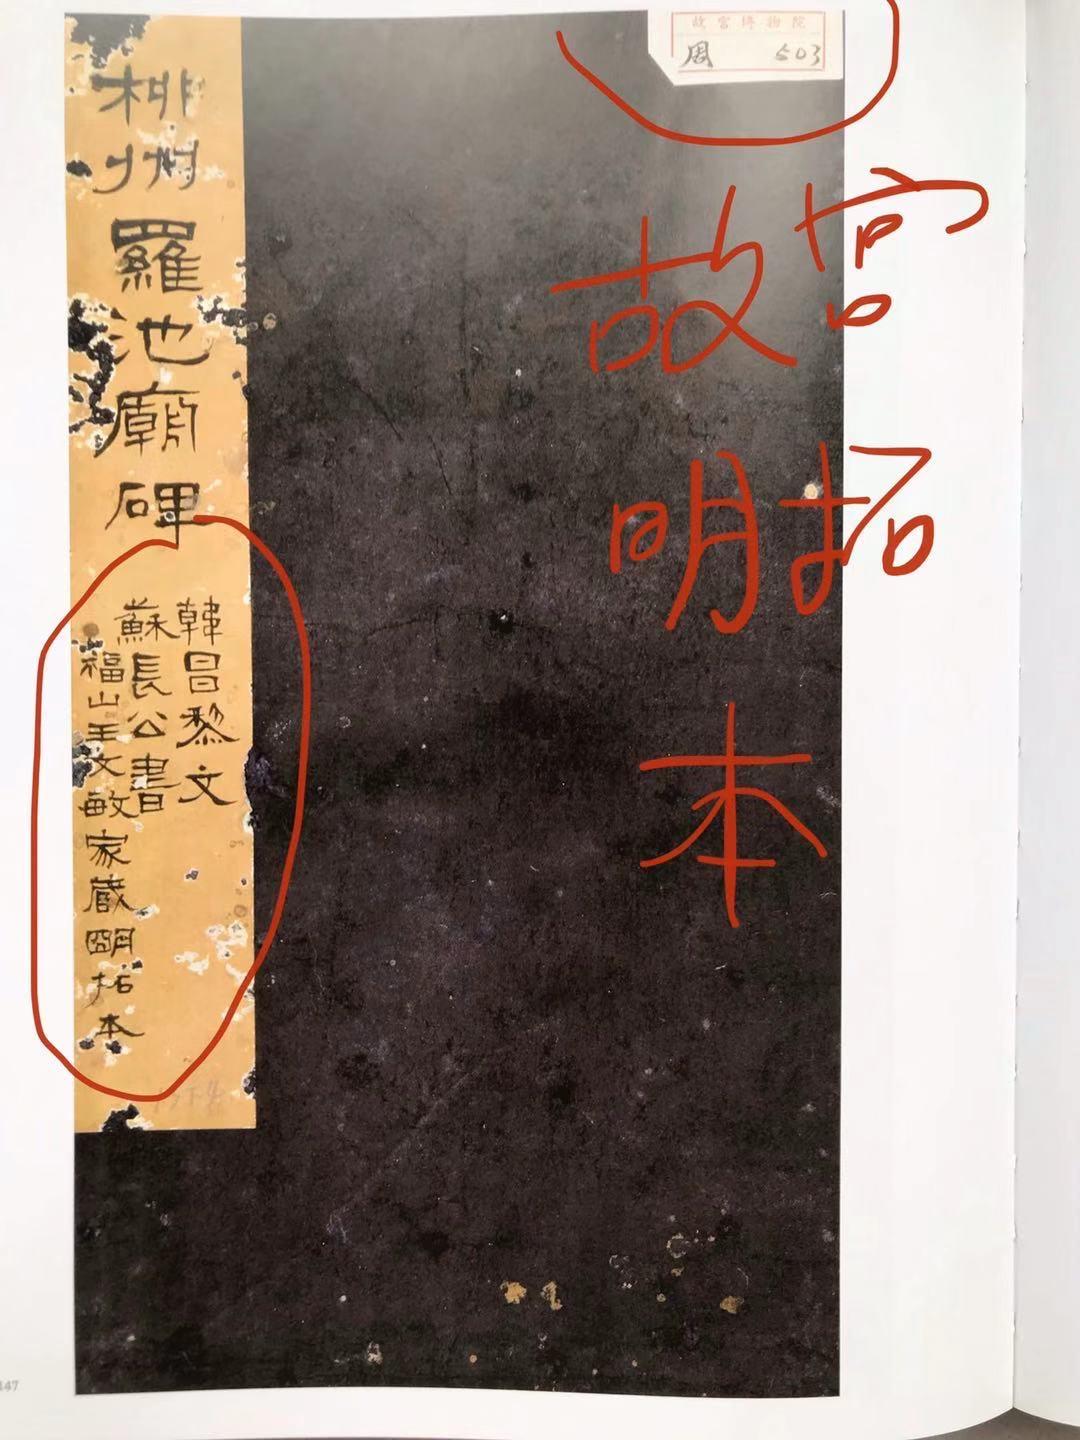 故宮博物院
周 503
柳州羅池廟碑
韓昌黎文
蘇長公書
福山王文敏家藏朙拓本
故宫
明拓
本
147